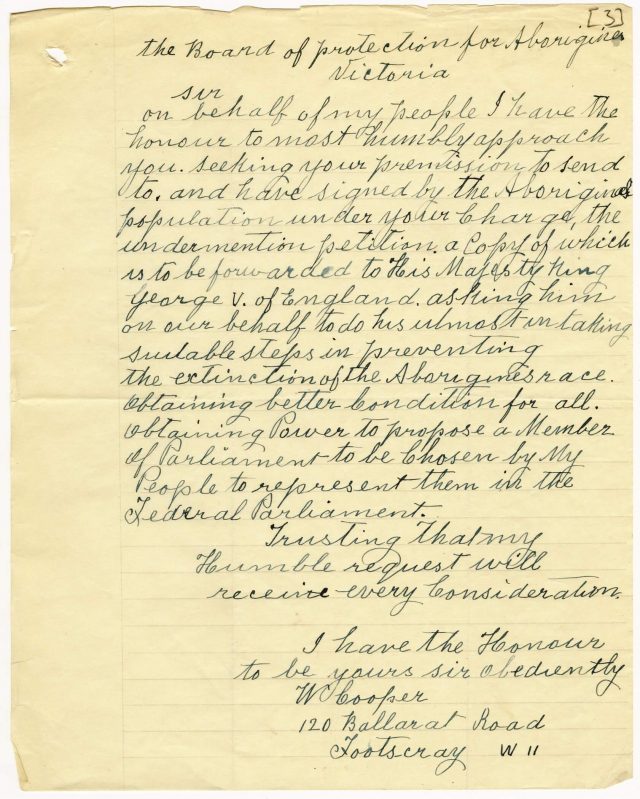 [3]
the Board of protection for Aborigines
Victoria
sir
on behalf of my people I have the
honour to most humbly approach
you. seeking your premission to send
to. and have signed by the Aborigines
population under your Charge, the
undermention petition. a Copy of which
is to be forwarded to His Majesty King
George V. of England. asking him
on our behalf to do his utmost in taking
suitable steps in preventing
the extinction of the Aborigines race.
Obtaining better Condition for all.
Obtaining Power to propose a Member
of Parliament to be Chosen by My
People to represent them in the
Federal Parliament.
Trusting that my
Humble request will
receive every Consideration.
I have the Honour
to be yours sir obediently
W Cooper
120 Ballarat Road
Footscray W 11